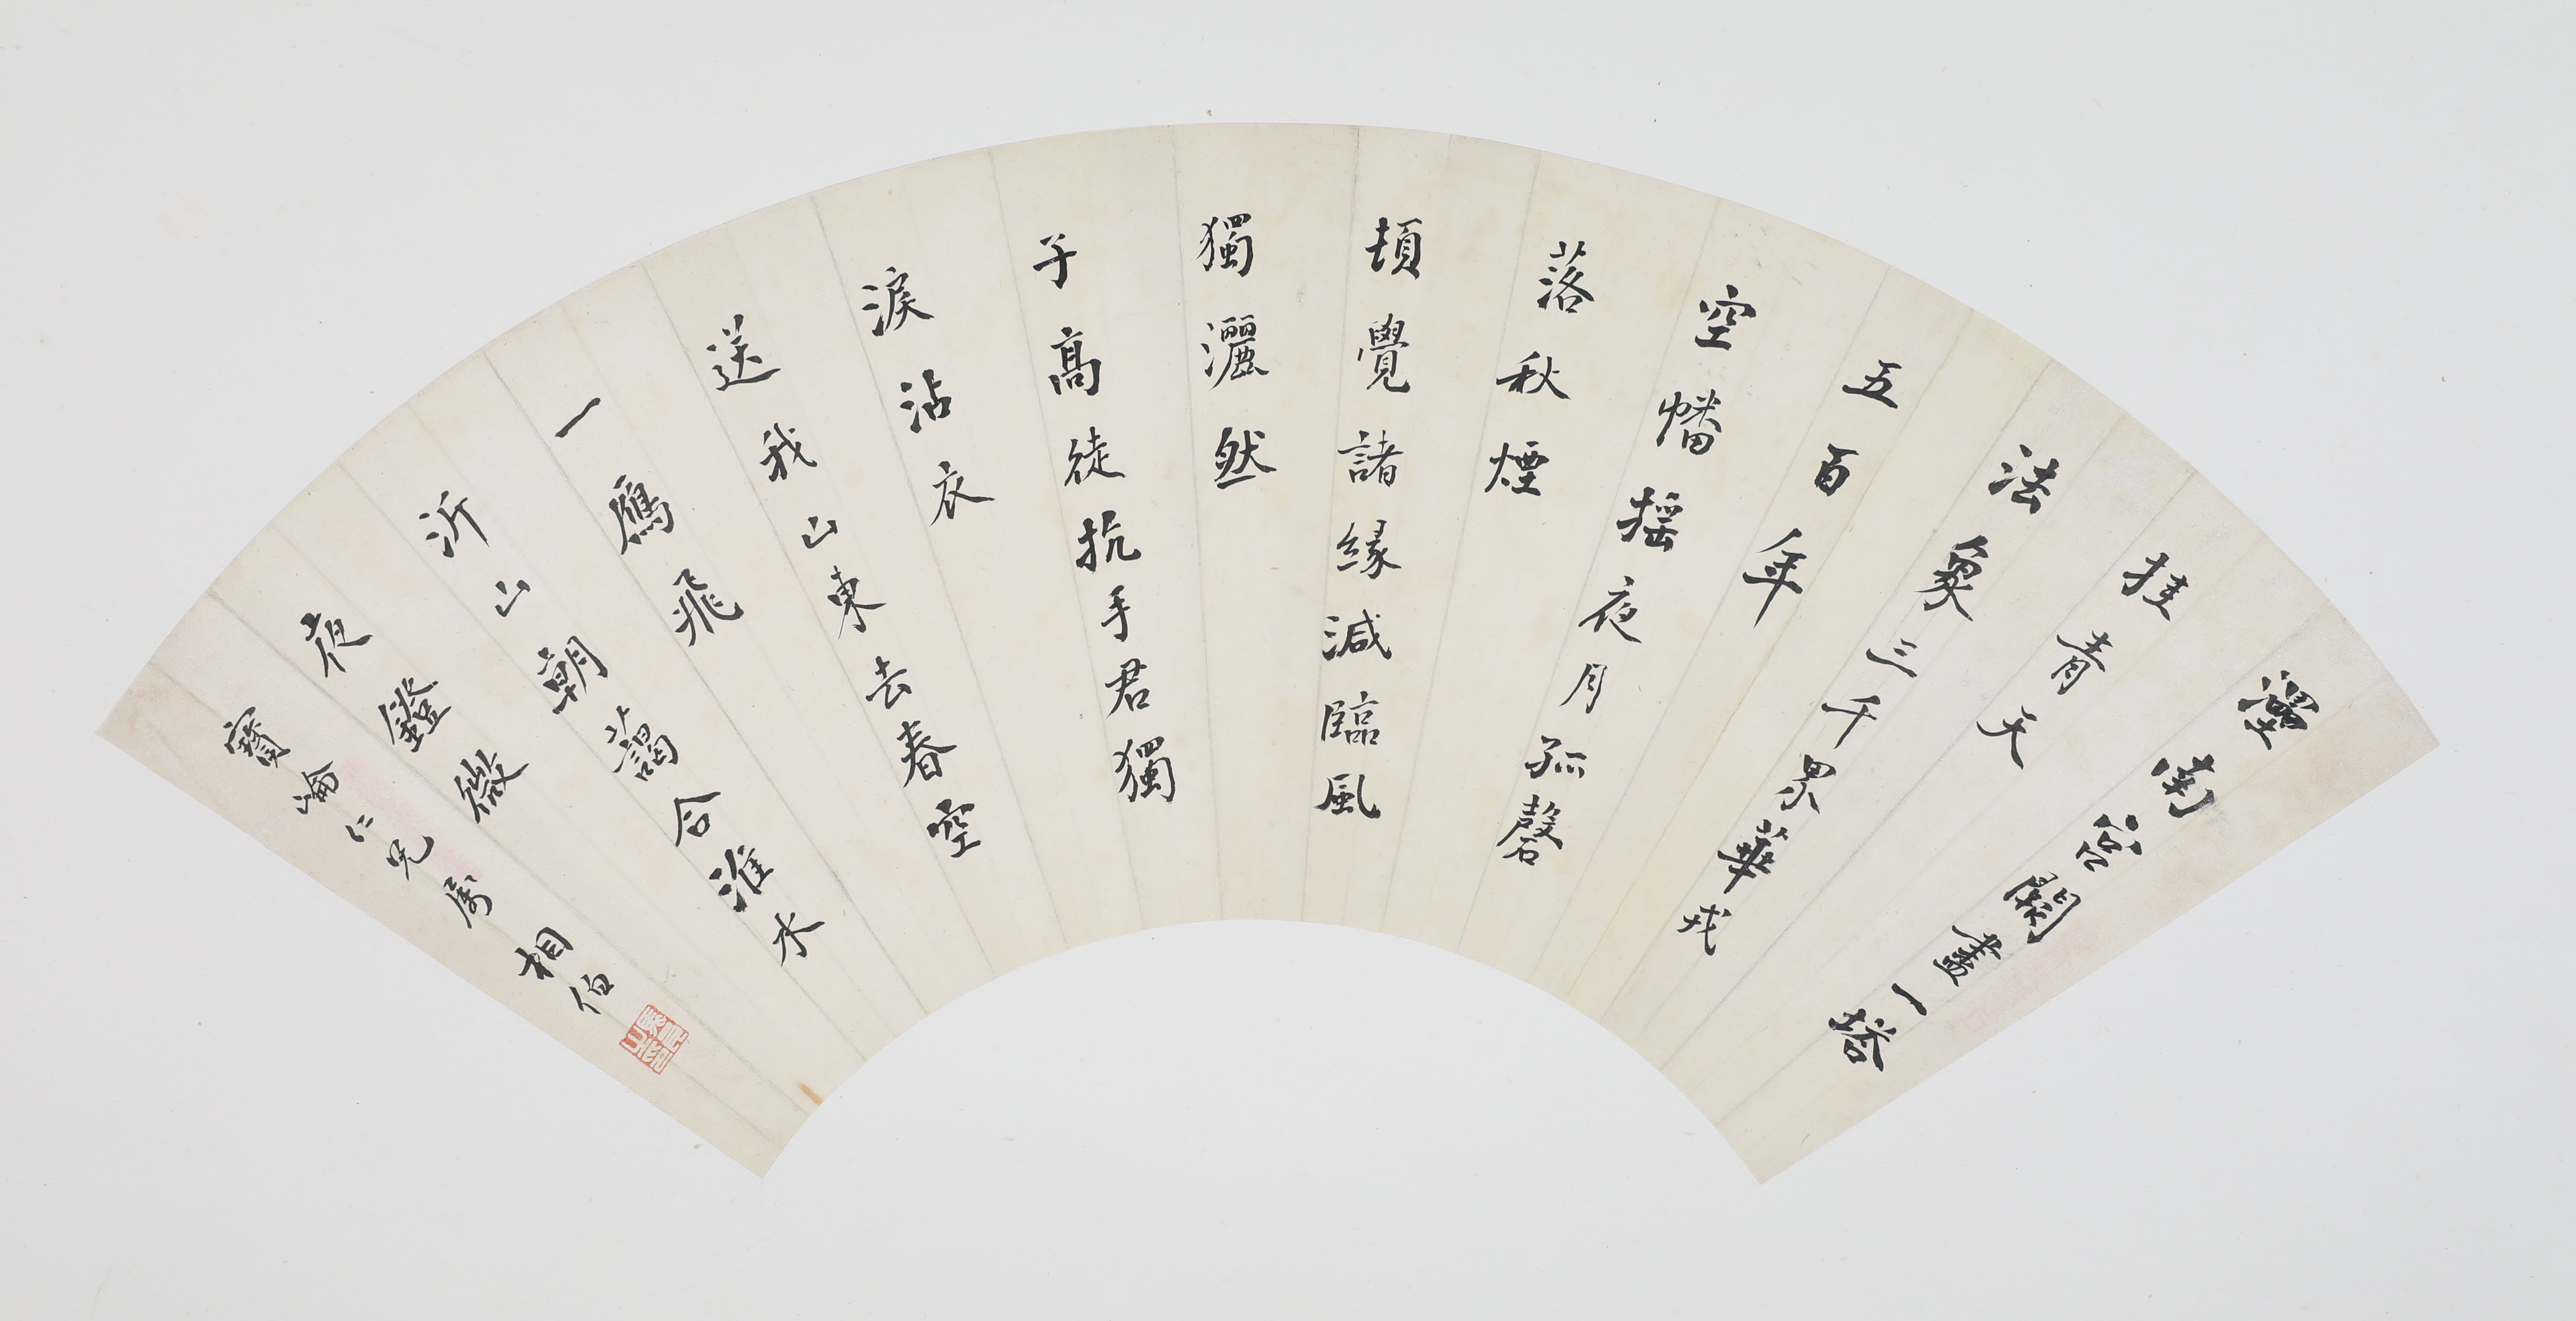 灅南宮闕盡一塔
挂青天
法象三千界華戎
五百年
空幡搖夜月孤磬
落秋煙
頓覺諸緣減臨風
獨灑然
子高徒抗手君獨
淚沾衣
送我山東去春空
一鴈飛
沂山朝藹合淮水
夜鐙微
寶崙仁兄屬 相伯